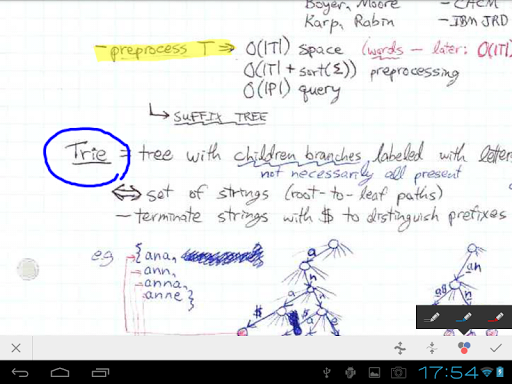 Boyer, Moore – CACM
Karp, Rabin – IBM JRD
– preprocess T ⇒ O(|T|) space (words – later: O(|T|)
O(|T| + sort(Σ)) preprocessing
O(|P|) query
↳ SUFFIX TREE
Trie = tree with children branches labeled with letters
not necessarily all present
⇔ set of strings (root-to-leaf paths)
– terminate strings with $ to distinguish prefixes
eg {ana,
ann,
anna,
anne}
a
n
a
n
$
a
e
an
a$
n
17:54